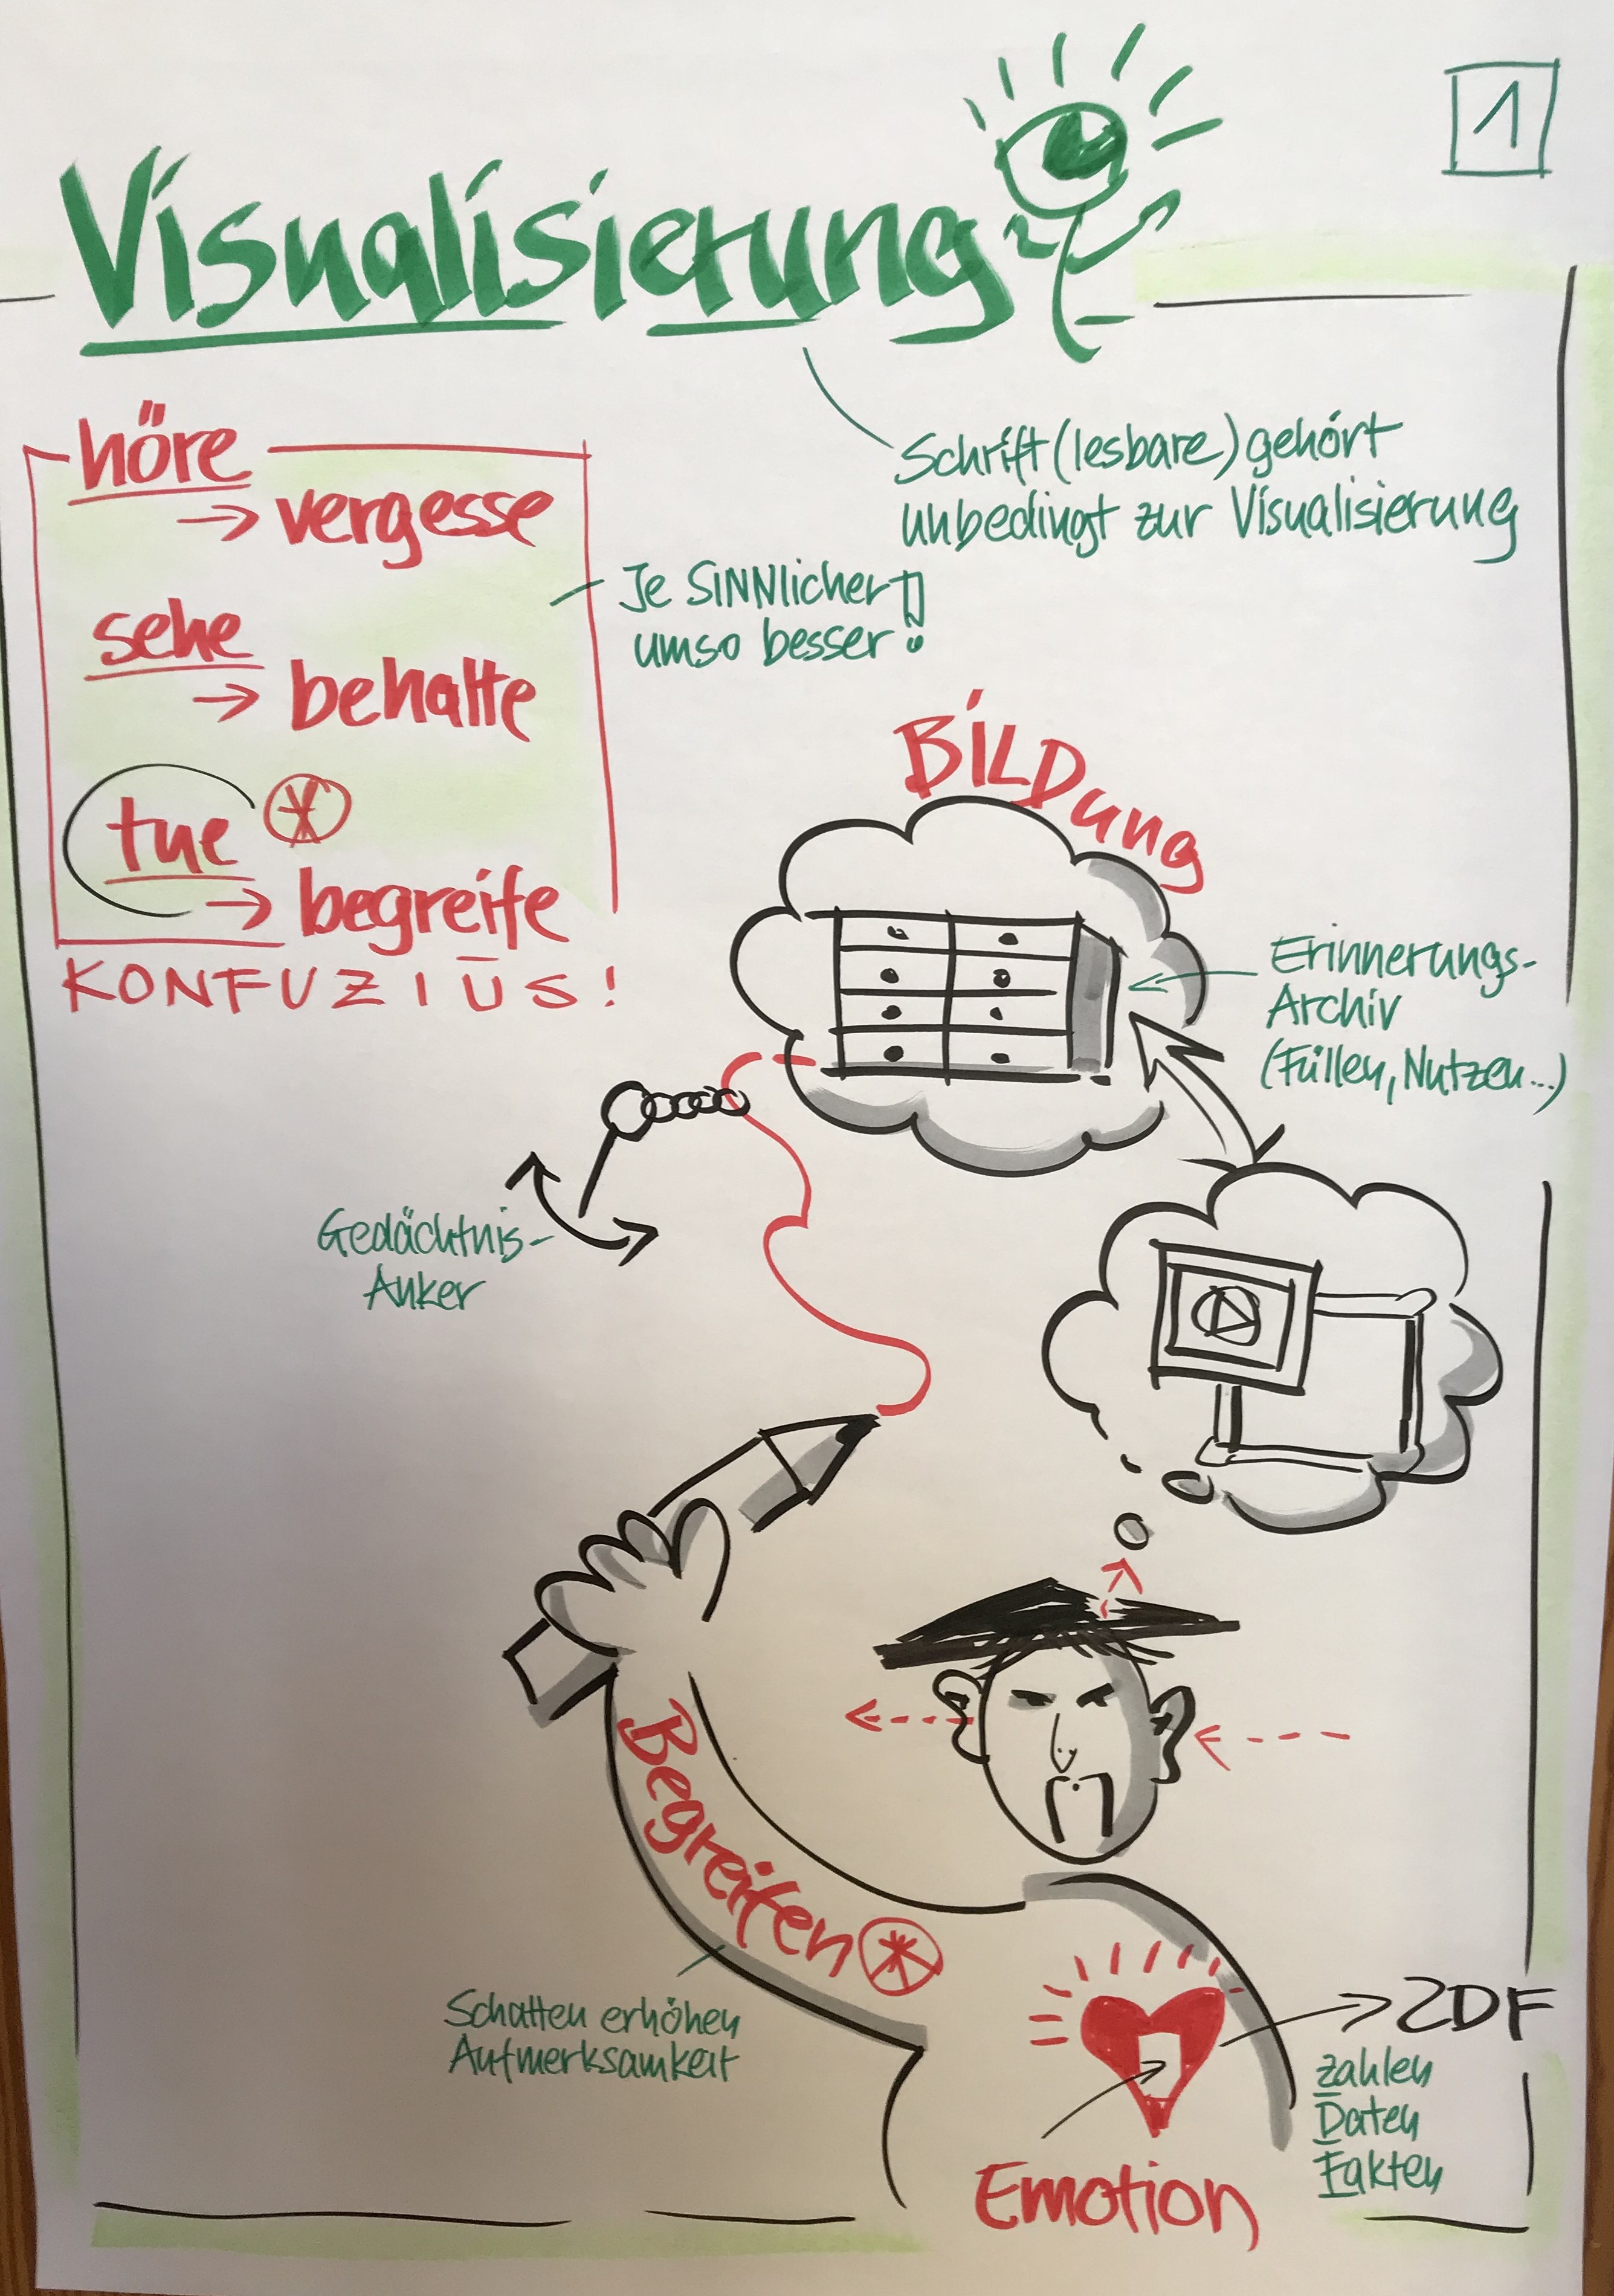 1
Visualisierung
höre
→ vergesse
sehe
→ behalte
tue
→ begreife
KONFUZIUS!
Schrift (lesbare) gehört
unbedingt zur Visualisierung
Je SINNlicher
umso besser!
BILDung
Erinnerungs-
Archiv
(Füllen, Nutzen...)
Gedächtnis-
Anker
Begreifen
Schatten erhöhen
Aufmerksamkeit
ZDF
Zahlen
Daten
Fakten
Emotion